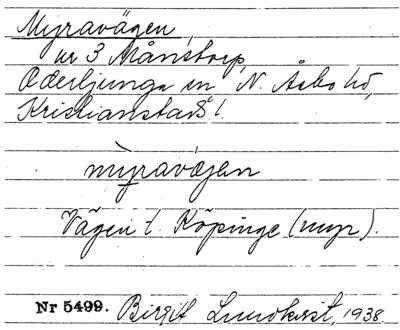 Myravägen,
nr 3 Månstorp,
Oderljunga sn, N. Åsbo hd,
Kristianstads l.
myravägen
Vägen t. Köpinge (myr).
Nr 5499. Birgit Lundkvist, 1938.